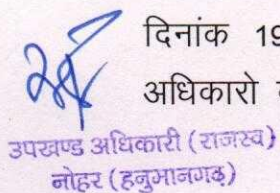 दिनांक 19
अधिकारो
उपखण्ड अधिकारी (राजस्व)
नोहर (हनुमानगढ़)